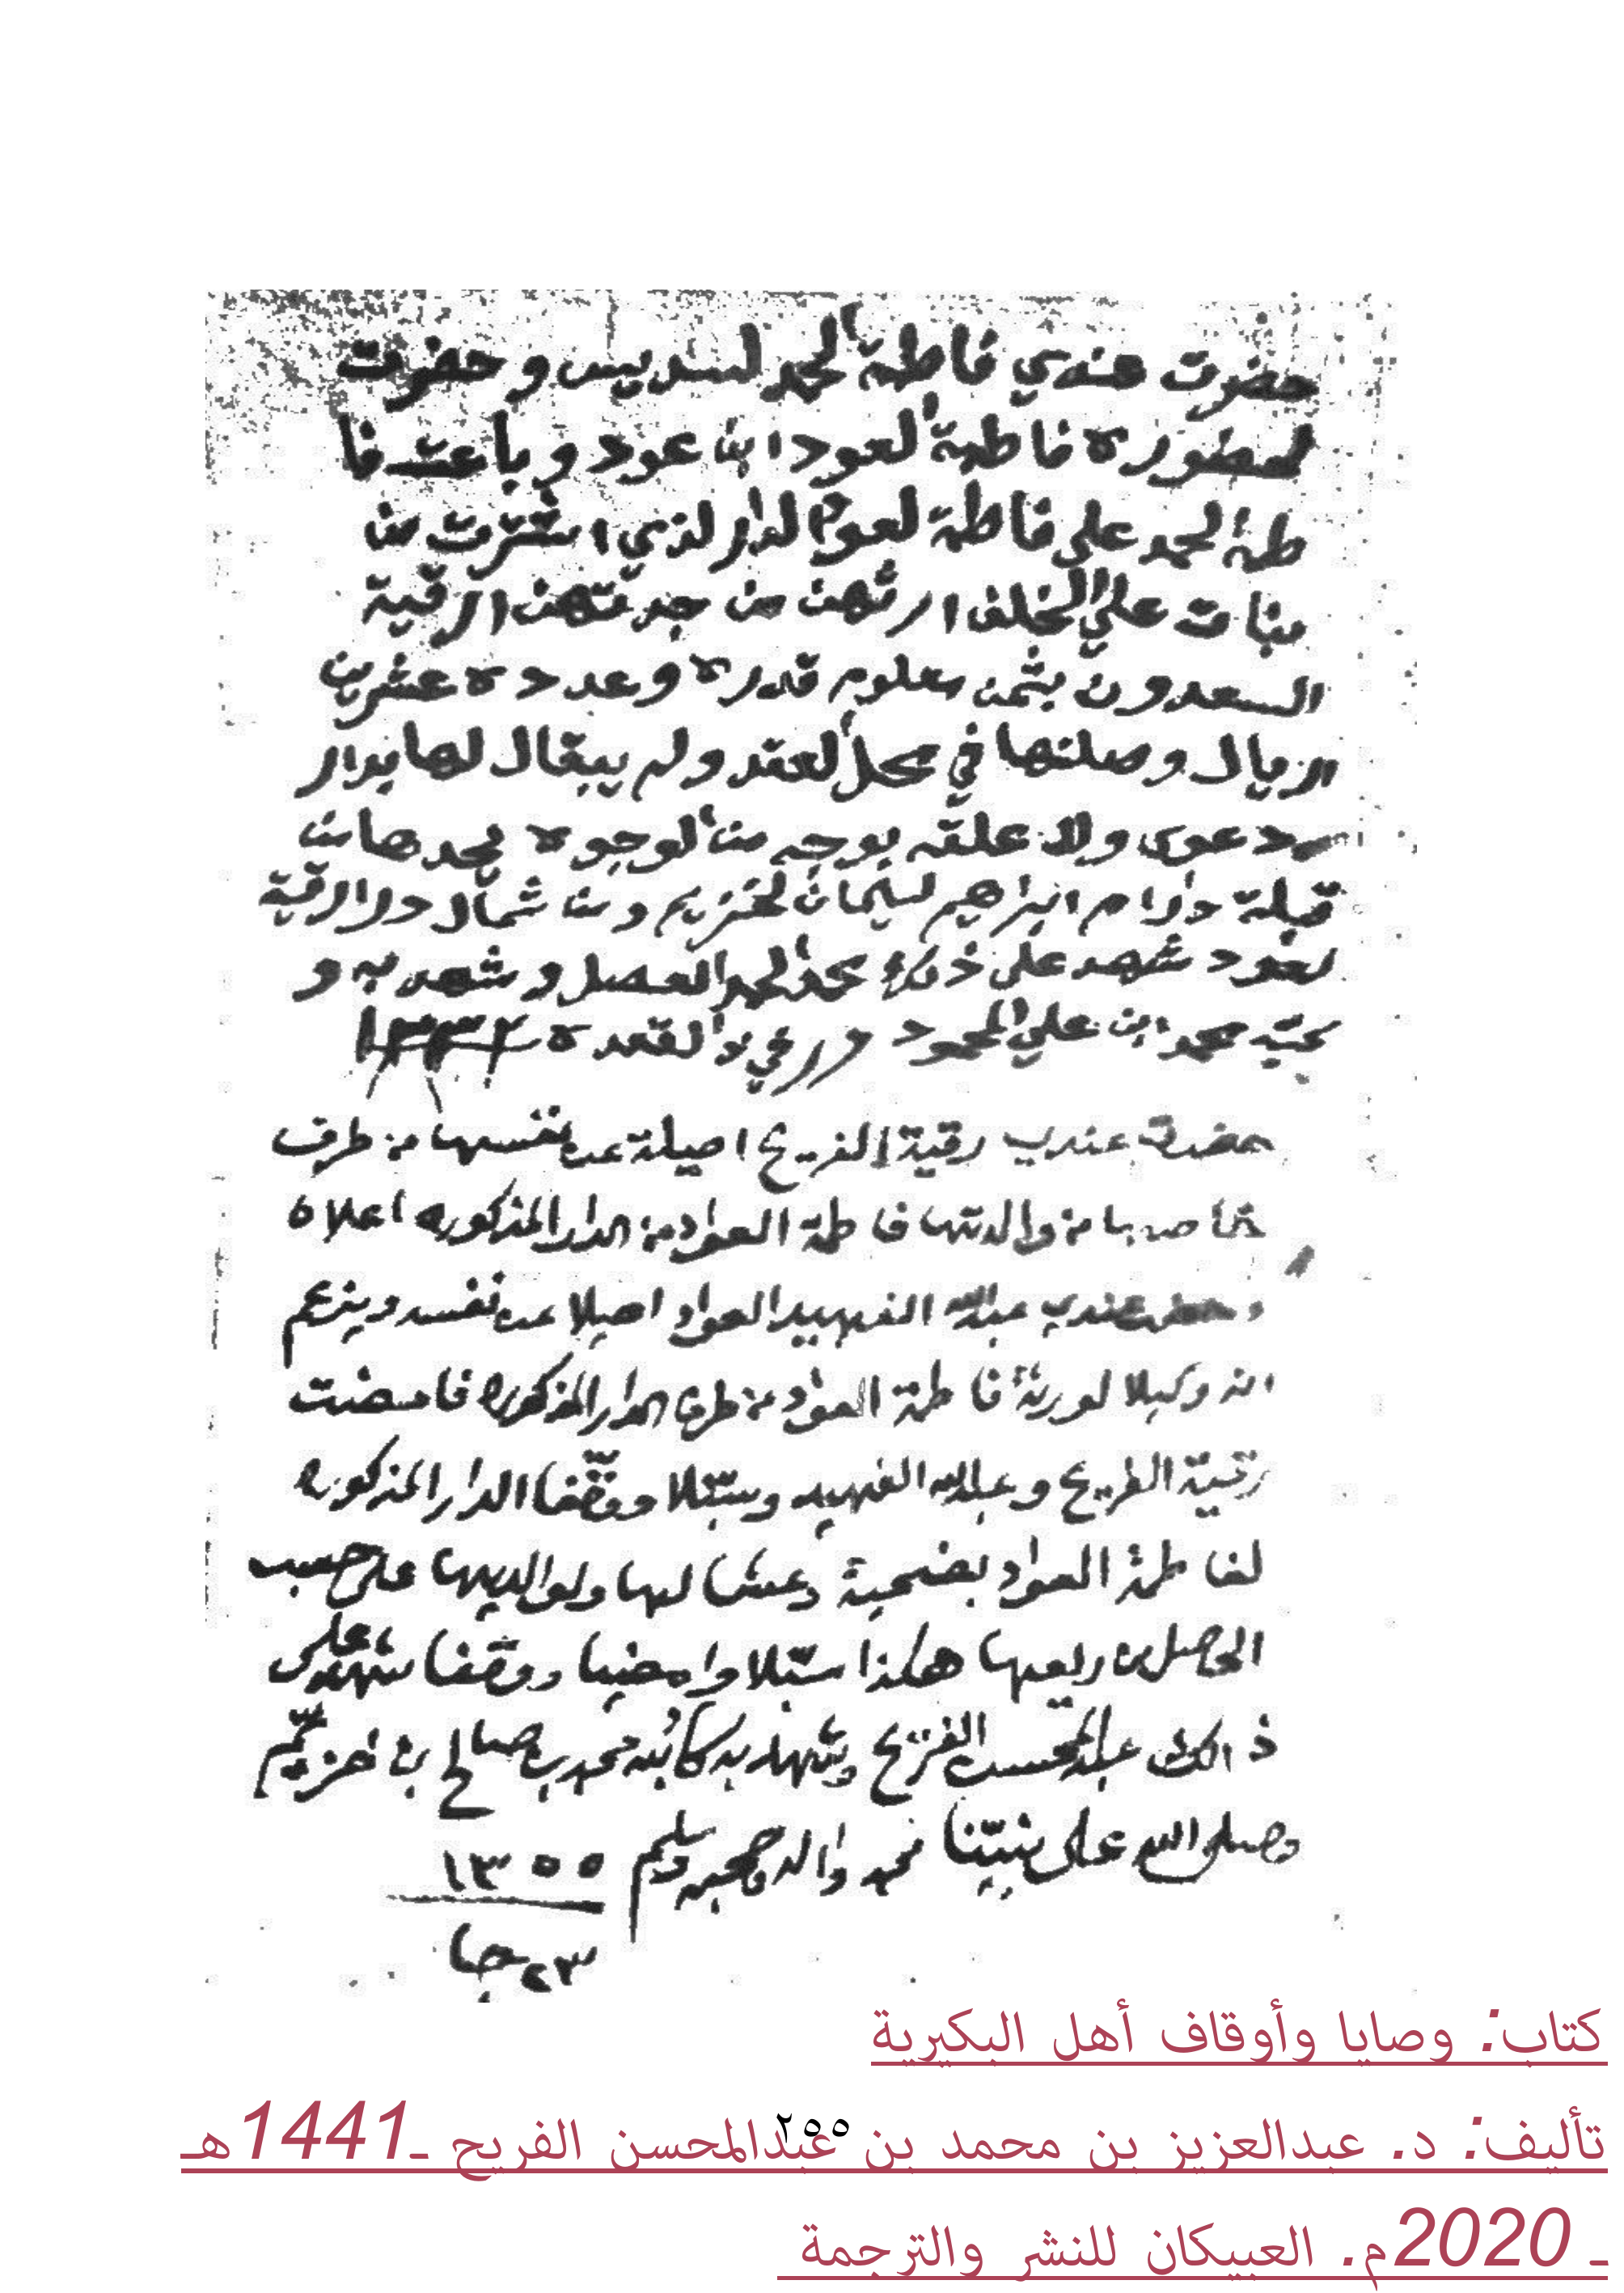 حضرت عندي فاطمة الحمد لسديس و حضرت
لحضوره فاطمة العود ابن عود و باعت فا
طمة لحمد على فاطمة لعود الدار لذي اشترت من
بنات علي الخلف ارثهن من جدتهن الرقية
السعدون بثمن معلوم قدره وعدده عشرين
اريال وصلنها في محل العقد ولم يبقا ل لها بدار
دعوى ولا علقه بوجه من الوجوه يحدها من
قبلة دار ام ابراهيم لسليمان لخزيم ومن شمال دار الرقية
شهد على ذلك محمد الحمد وشهد به و
كتبه محمد ابن علي المحمود في ذا القعده
حضرت عندي رقية الفريح اصيلة عن نفسها من طرف
ما صابها من والدتها فاطمة العواد من الدار المذكوره اعلاه
و حضر عندي عبدالله الفهيد العواد اصيلا عن نفسه ويزعم
انه وكيلا لورثة فاطمة العواد من طرف الدار المذكوره فامضت
رقية الفريح وعبدالله الفهيد وسبّلا ووقّفا الدار المذكوره
لفاطمة العواد بضحية وعشا لها ولوالديها على حسب
الحاصل من ريعها هكذا سبّلا وامضيا ووقفا شهد على
ذالك عبدالمحسن الفريح وشهد به كاتبه محمد بن صالح بن خزيّم
وصلى الله على نبيّنا محمد واله وصحبه وسلم ١٣٥٥
٢٣ جا
كتاب: وصايا وأوقاف أهل البكيرية
٢٥٥
تأليف: د. عبدالعزيز بن محمد بن عبدالمحسن الفريح ـ1441هـ
ـ 2020م. العبيكان للنشر والترجمة